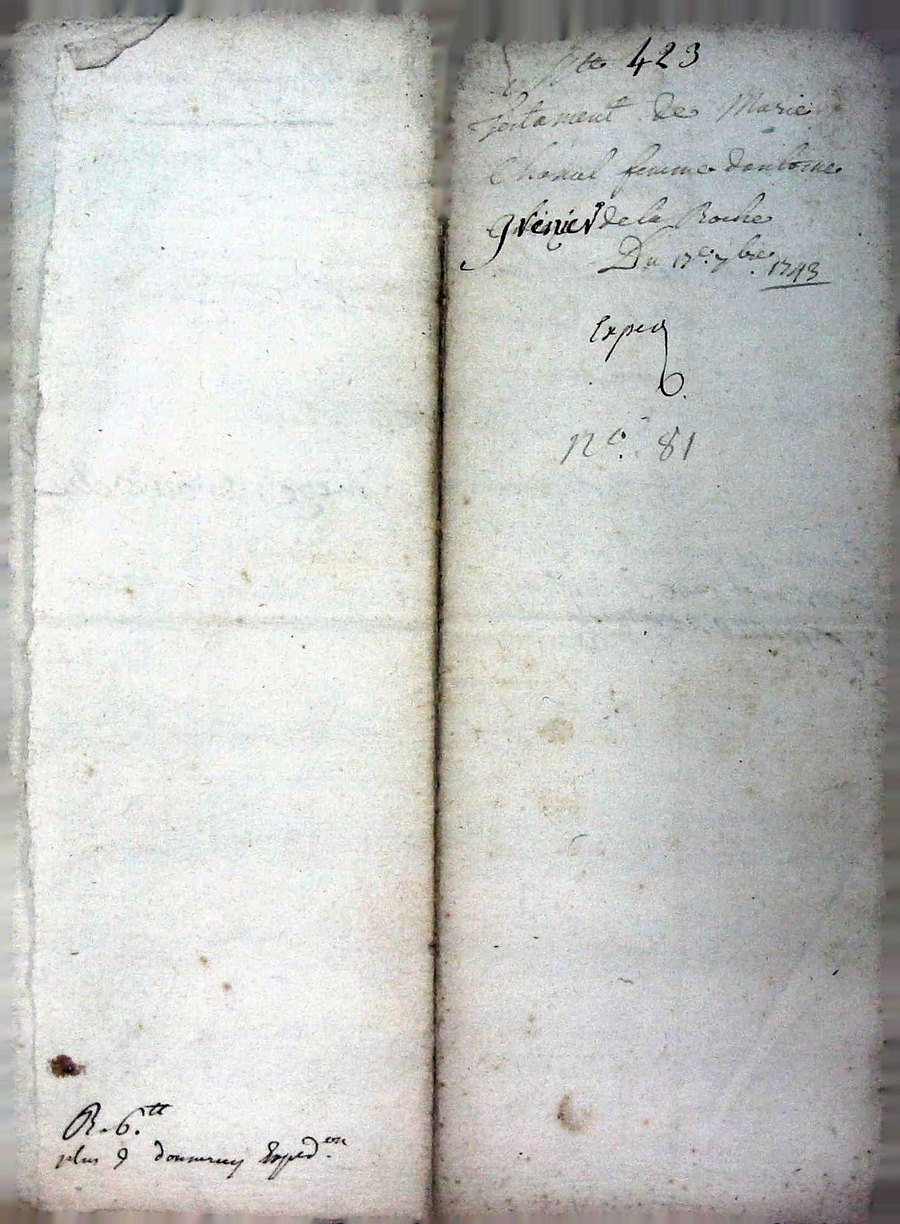 R. 6.tt
plus 9 Exped.on
Cotte 423
Testament de Marie
Chanal femme dantoine
grénier de la Roche
Du 17e. 7bre 1743
Exped
No. 81